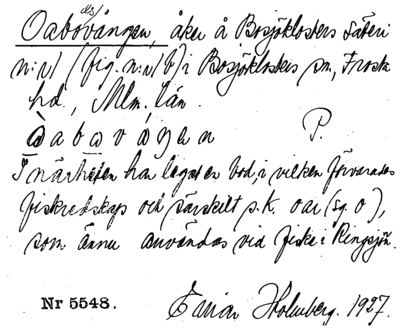 Oabovången, åker å Bosjöklosters säteri
n:r 1 (fig. n:r 1 b) i Bosjöklosters sn, Frosta
hd, Mlm. län.
òabovåŋen P.
I närheten har legat en bod, i vilken förvarades
fiskredskap och särskilt s.k. oar (sg. o),
som ännu användas vid fiske i Ringsjön.
Nr 5548. Einar Holmberg. 1927.